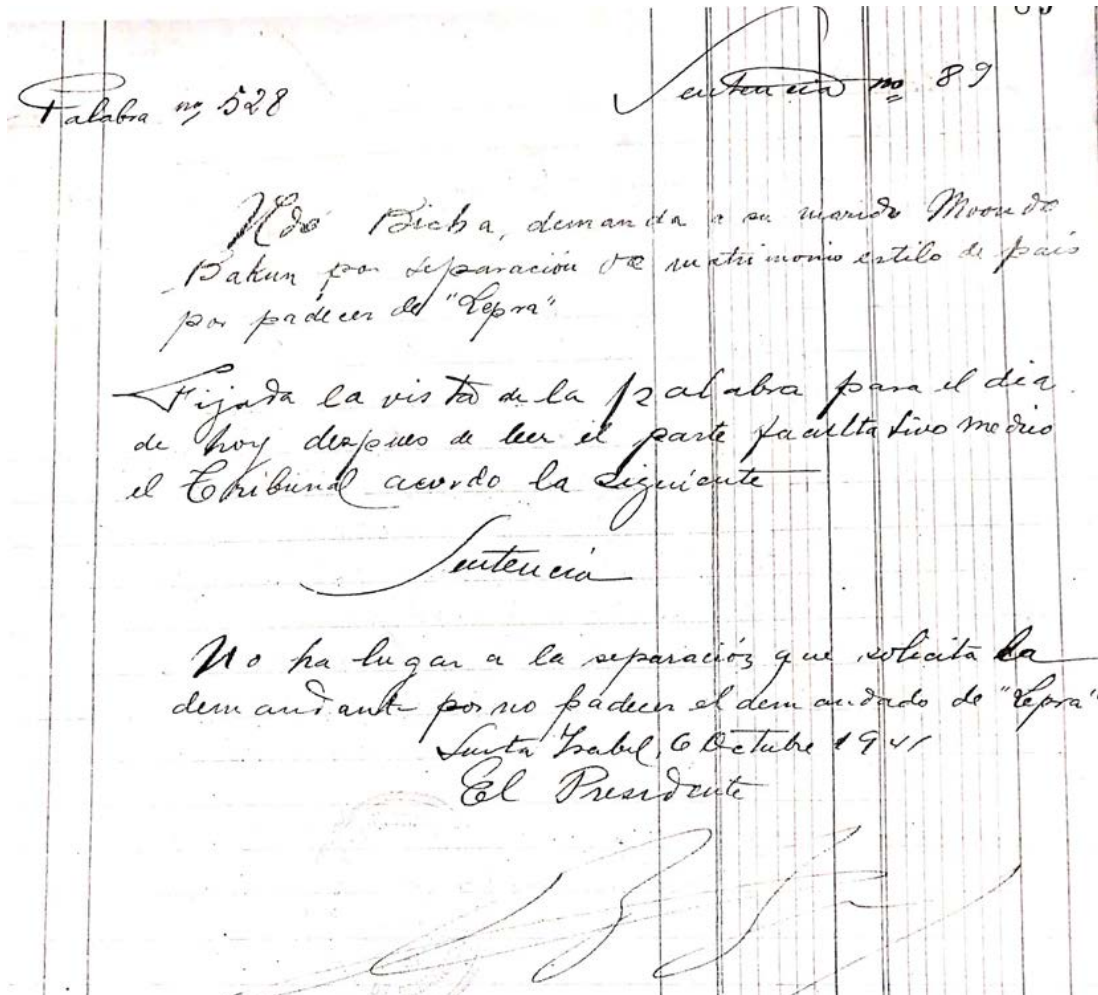 Palabra nº 528
Sentencia nº 89
Bicha, demanda a su marido Moondo
Bakun por separación de matrimonio estilo de pais
por padecer de "Lepra"
Fijada la vista de la palabra para el dia
de hoy despues de leer el parte facultativo medico
el Tribunal acordo la siguiente
Sentencia
No ha lugar a la separación que solicita la
demandante por no padecer el demandado de "Lepra"
Santa Isabel, 6 Octubre 1941
El Presidente